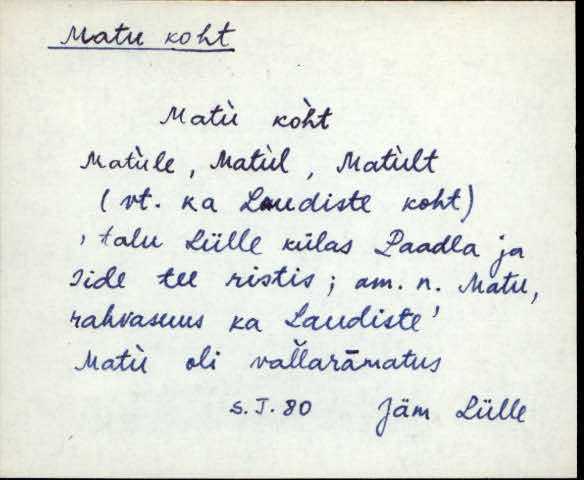 Matu koht
Matù koh̀t
Matùle, Matùl, Matùlt
(vt. ka Laudiste koht)
, talu Lülle külas Paadla ja
Side tee ristis; am. n. Matu,
rahvasuus ka Laudiste'
Matù oli val̆larāmatus
S.J. 80 Jäm Lülle